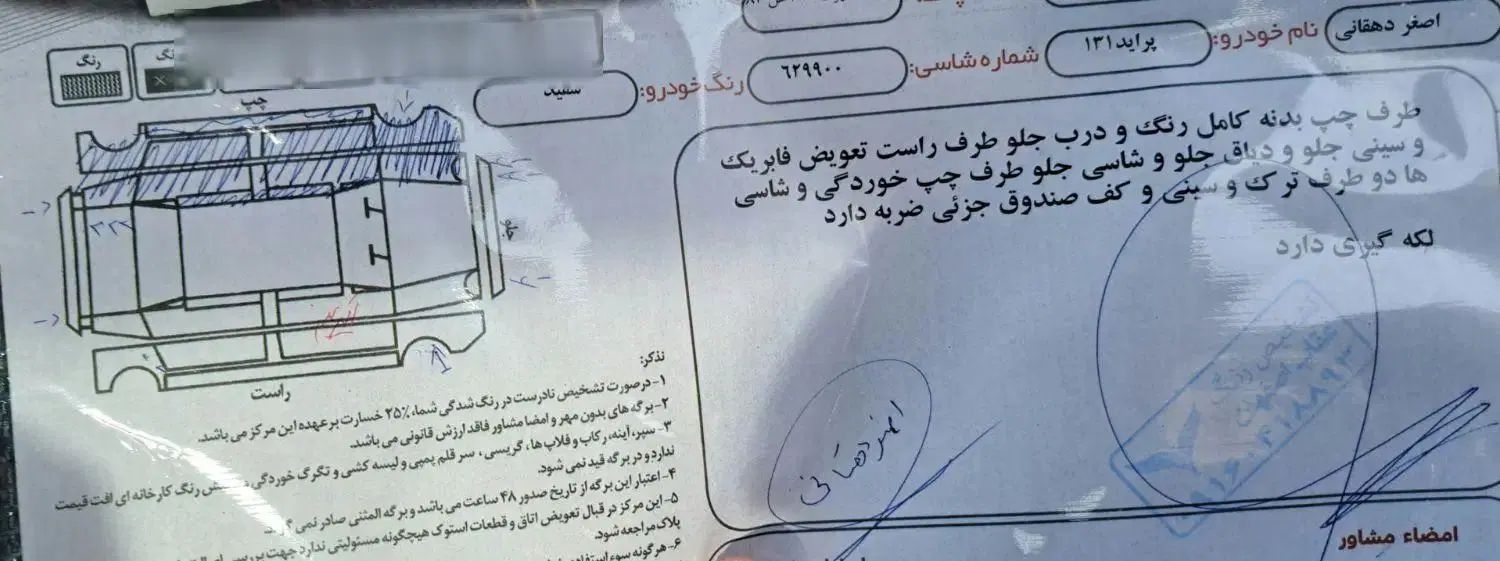 اصغر دهقانی
نام خودرو: پراید ۱۳۱
شماره شاسی: ۶۲۹۹۰۰
رنگ خودرو: سفید
رنگ
چپ
جلو
راست
طرف چپ بدنه کامل رنگ و درب جلو طرف راست تعویض فابریک
و سینی جلو و دیاق جلو و شاسی جلو طرف چپ خوردگی و شاسی
ها دو طرف ترک و سینی و کف صندوق جزئی ضربه دارد
لکه گیری دارد
تذکر:
۱- درصورت تشخیص نادرست در رنگ شدگی شما، ۲۵٪ خسارت بر عهده این مرکز می باشد.
۲- برگه های بدون مهر و امضا مشاور فاقد ارزش قانونی می باشد.
۳- سپر، آینه، رکاب و فلاپ ها، گریسی، سر قلم پمپی و لیسه کشی و تگرگ خوردگی رنگ کارخانه ای افت قیمت
ندارد و در برگه قید نمی شود.
۴- اعتبار این برگه از تاریخ صدور ۴۸ ساعت می باشد و برگه المثنی صادر نمی
۵- این مرکز در قبال تعویض اتاق و قطعات استوک هیچگونه مسئولیتی ندارد جهت بررسی
پلاک مراجعه شود.
۶- هرگونه سوء استفاده
اصغر دهقانی
امضاء مشاور